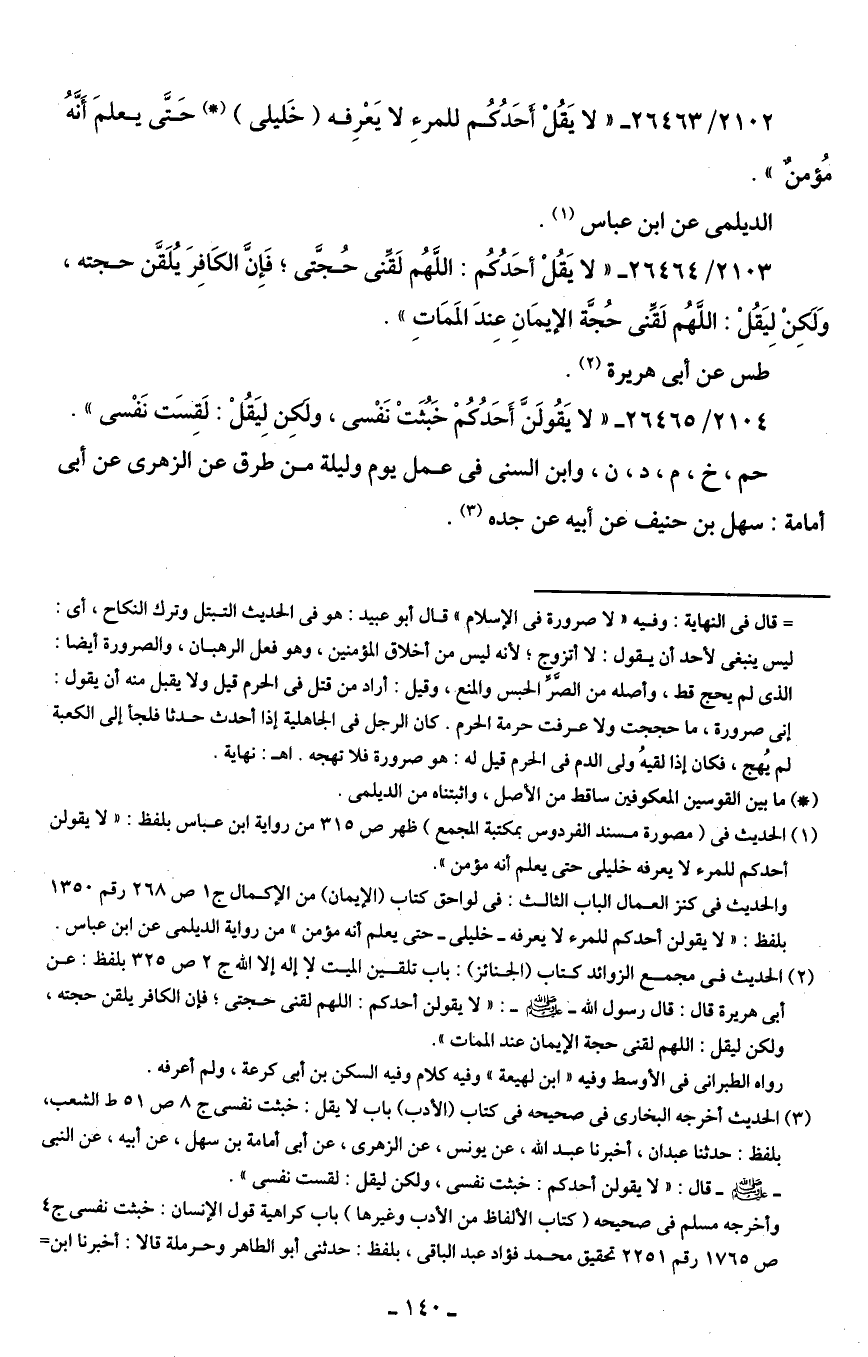 ٢١٠٢/ ٢٦٤٦٣ـ « لا يَقُلْ أَحَدُكُم للمرءِ لا يَعْرِفه ( خَليلى ) (*) حَتَّى يعلمَ أَنَّهُ
مُؤمنٌ » .
الديلمى عن ابن عباس (١) .
٢١٠٣/ ٢٦٤٦٤ـ « لا يَقُلْ أحَدُكُم : اللَّهُم لَقِّنى حُجَّتى ؛ فَإِنَّ الكَافِرَ يُلَقَّن حجته ،
وَلَكِنْ لِيَقُلْ : اللَّهُم لَقِّنى حُجَّة الإيمَانِ عِندَ المَمَاتِ » .
طس عن أبى هريرة (٢) .
٢١٠٤/ ٢٦٤٦٥ـ « لا يَقُولَنَّ أَحَدُكُمْ خَبُثَتْ نَفْسى ، ولَكِن لِيَقُلْ : لَقِسَت نَفْسى » .
حم ، خ ، م ، د ، ن ، وابن السنى فى عمل يوم وليلة من طرق عن الزهرى عن أبى
أمامة : سهل بن حنيف عن أبيه عن جده (٣) .
= قال فى النهاية : وفيه « لا صرورة فى الإسلام » قال أبو عبيد : هو فى الحديث التبتل وترك النكاح ، أى :
ليس ينبغى لأحد أن يقول : لا أتزوج ؛ لأنه ليس من أخلاق المؤمنين ، وهو فعل الرهبان ، والصرورة أيضا :
الذى لم يحج قط ، وأصله من الصَّرِّ الحبس والمنع ، وقيل : أراد من قتل فى الحرم قيل ولا يقبل منه أن يقول :
إنى صرورة ، ما حججت ولا عرفت حرمة الحرم . كان الرجل فى الجاهلية إذا أحدث حدثا فلجأ إلى الكعبة
لم يُهج ، فكان إذا لقيهُ ولى الدم فى الحرم قيل له : هو صرورة فلا تهجه . اهـ : نهاية .
(*) ما بين القوسين المعكوفين ساقط من الأصل ، واثبتناه من الديلمى .
(١) الحديث فى ( مصورة مسند الفردوس بمكتبة المجمع ) ظهر ص ٣١٥ من رواية ابن عباس بلفظ : « لا يقولن
أحدكم للمرء لا يعرفه خليلى حتى يعلم أنه مؤمن ».
والحديث فى كنز العمال الباب الثالث : فى لواحق كتاب (الإيمان) من الإكمال ج١ ص ٢٦٨ رقم ١٣٥٠
بلفظ : « لا يقولن أحدكم للمرء لا يعرفه ـ خليلى ـ حتى يعلم أنه مؤمن » من رواية الديلمى عن ابن عباس .
(٢) الحديث فى مجمع الزوائد كتاب (الجنائز) : باب تلقين الميت لا إله إلا الله ج ٢ ص ٣٢٥ بلفظ : عن
أبى هريرة قال : قال رسول الله ـ ﷺ ـ : « لا يقولن أحدكم : اللهم لقنى حجتى ؛ فإن الكافر يلقن حجته ،
ولكن ليقل : اللهم لقنى حجة الإيمان عند الممات ».
رواه الطبرانى فى الأوسط وفيه « ابن لهيعة » وفيه كلام وفيه السكن بن أبى كرعة ، ولم أعرفه .
(٣) الحديث أخرجه البخارى فى صحيحه فى كتاب (الأدب) باب لا يقل : خبثت نفسى ج ٨ ص ٥١ ط الشعب،
بلفظ : حدثنا عبدان ، أخبرنا عبد الله ، عن يونس ، عن الزهرى ، عن أبى أمامة بن سهل ، عن أبيه ، عن النبى
ـ ﷺ ـ قال : « لا يقولن أحدكم : خبثت نفسى ، ولكن ليقل : لقست نفسى » .
وأخرجه مسلم فى صحيحه ( كتاب الألفاظ من الأدب وغيرها ) باب كراهية قول الإنسان : خبثت نفسى ج٤
ص ١٧٦٥ رقم ٢٢٥١ تحقيق محمد فؤاد عبد الباقى ، بلفظ : حدثنى أبو الطاهر وحرملة قالا : أخبرنا ابن=
ـ ١٤٠ ـ